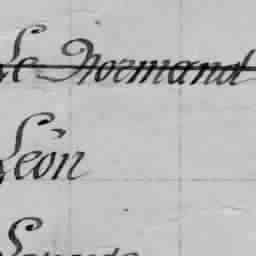 Le Normand
Léon